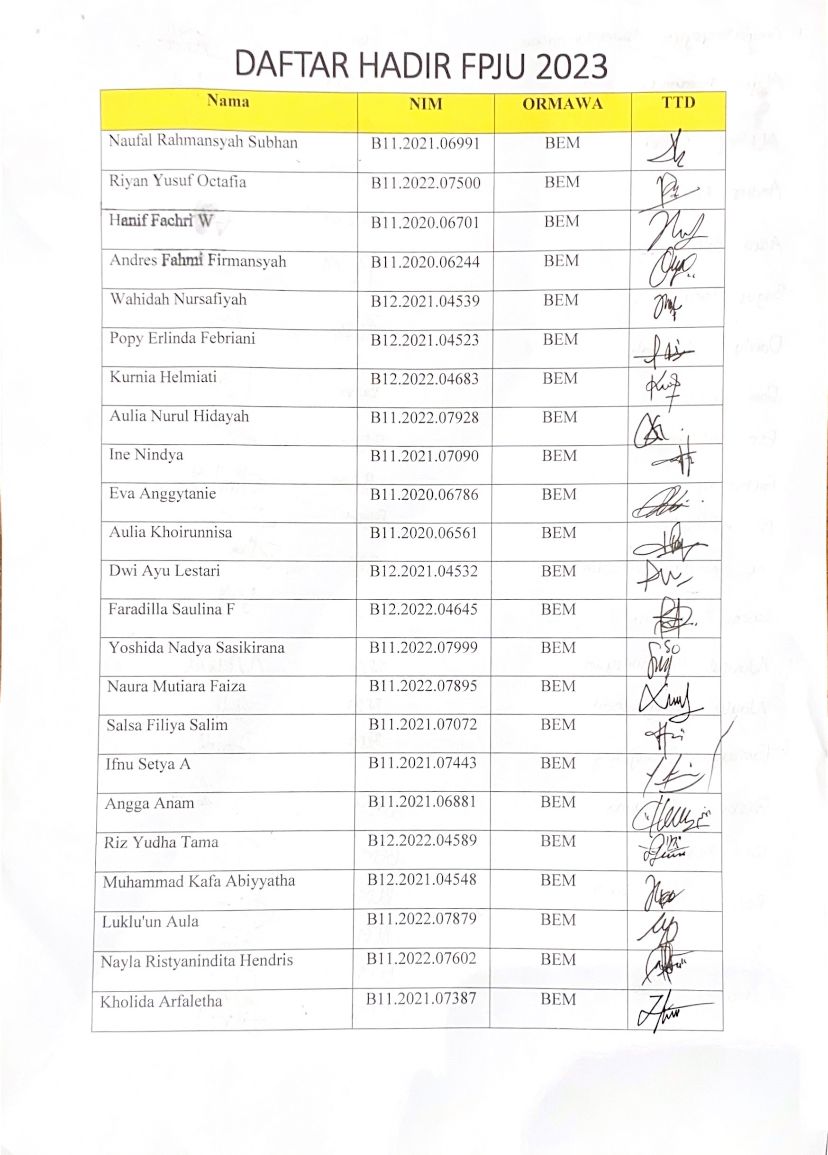 DAFTAR HADIR FPJU 2023
Nama NIM ORMAWA TTD
Naufal Rahmansyah Subhan B11.2021.06991 BEM
Riyan Yusuf Octafia B11.2022.07500 BEM
Hanif Fachri W B11.2020.06701 BEM
Andres Fahmi Firmansyah B11.2020.06244 BEM
Wahidah Nursafiyah B12.2021.04539 BEM
Popy Erlinda Febriani B12.2021.04523 BEM
Kurnia Helmiati B12.2022.04683 BEM
Aulia Nurul Hidayah B11.2022.07928 BEM
Ine Nindya B11.2021.07090 BEM
Eva Anggytanie B11.2020.06786 BEM
Aulia Khoirunnisa B11.2020.06561 BEM
Dwi Ayu Lestari B12.2021.04532 BEM
Faradilla Saulina F B12.2022.04645 BEM
Yoshida Nadya Sasikirana B11.2022.07999 BEM
Naura Mutiara Faiza B11.2022.07895 BEM
Salsa Filiya Salim B11.2021.07072 BEM
Ifnu Setya A B11.2021.07443 BEM
Angga Anam B11.2021.06881 BEM
Riz Yudha Tama B12.2022.04589 BEM
Muhammad Kafa Abiyyatha B12.2021.04548 BEM
Luklu'un Aula B11.2022.07879 BEM
Nayla Ristyanindita Hendris B11.2022.07602 BEM
Kholida Arfaletha B11.2021.07387 BEM